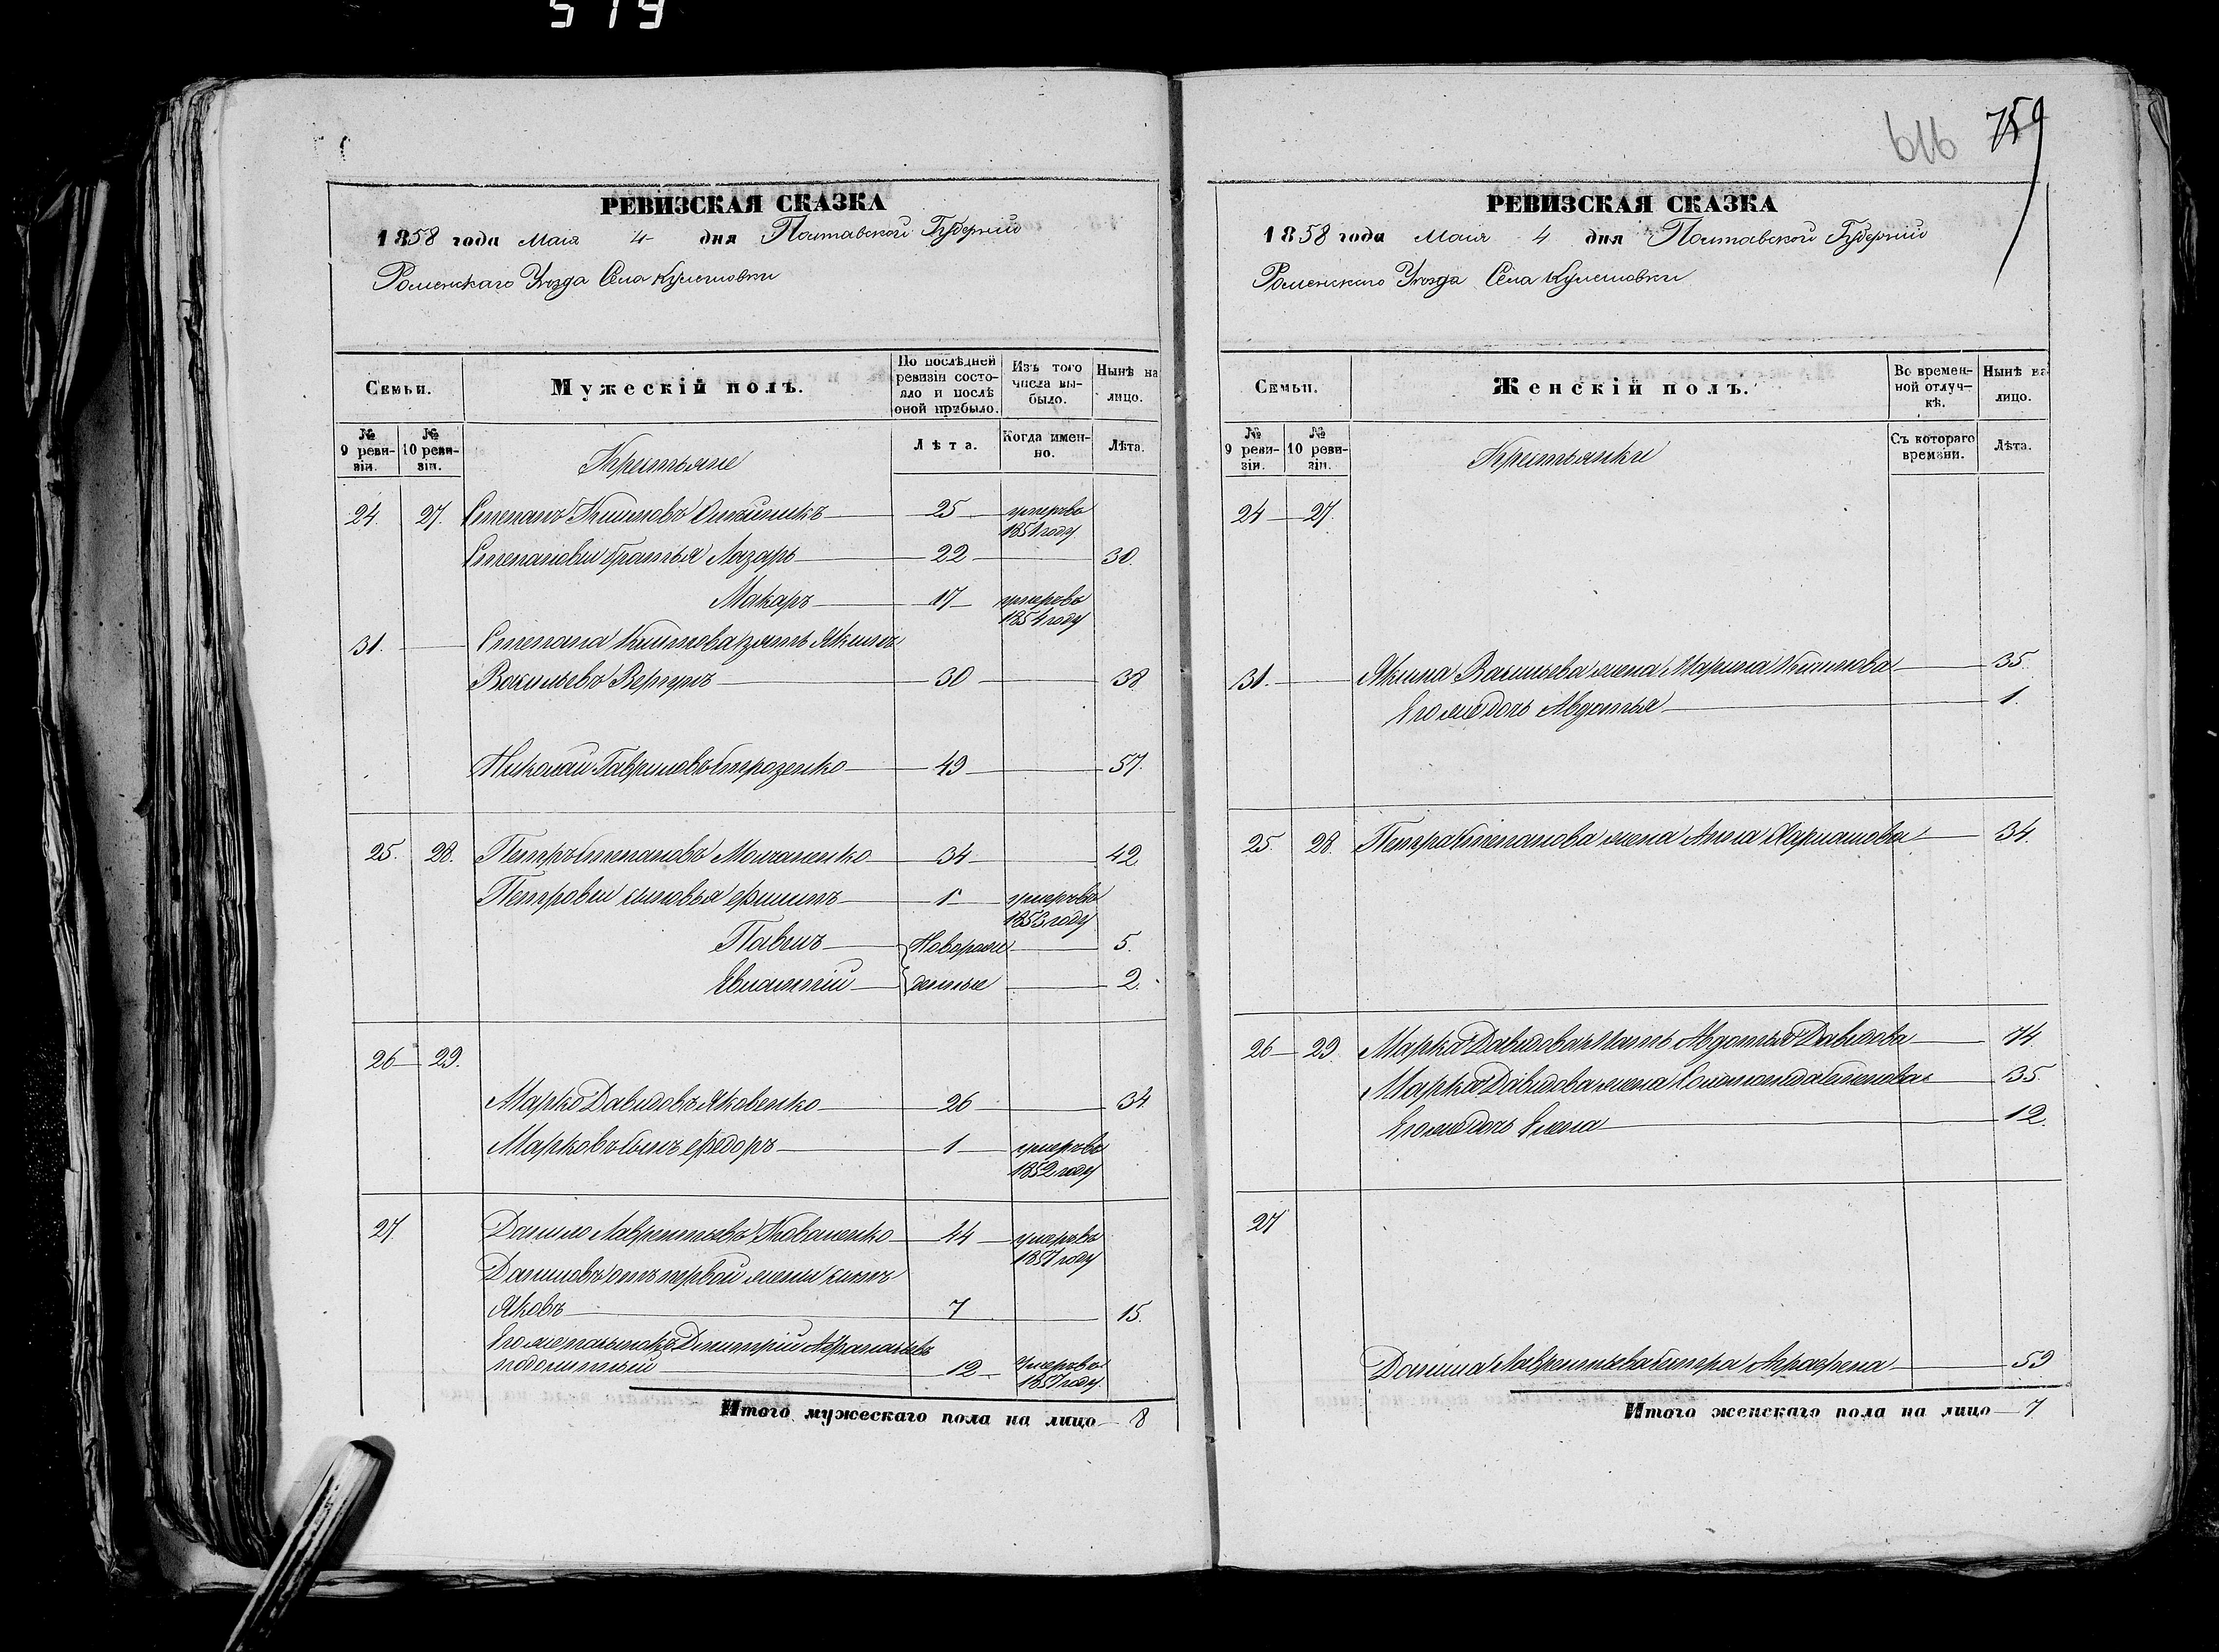 519
616 759
РЕВИЗСКАЯ СКАЗКА
1858 года Маія 4 дня Полтавской Губерніи
Роменскаго Уѣзда Села Кулешовки
Семьи.
Мужескій полъ.
По послѣдней ревизіи состояло и послѣ оной прибыло.
Изъ того числа выбыло.
Нынѣ на лицо.
№ 9 ревизіи.
№ 10 ревизіи.
Крестьяне
Лѣта.
Когда именно.
Лѣта.
24. 27. Степанъ 25 умеръ въ 1851 году
Степановы братья Лазарь 22 30.
Макаръ 17 умеръ въ 1854 году
31. Степана зять Якимъ
Васильевъ Вергунъ 30 38.
Николай Гавриловъ 49 57.
25. 28. Петръ Степановъ Молчаненко 34 42
Петровы сыновья Филипъ 1 умеръ въ 1853 году
Павелъ Новорож 5.
Евлампій денные 2.
26 29.
Марко Давидовъ Яковенко 26 34.
Марковъ сынъ Федоръ 1 умеръ въ 1852 году
27. Данило Лаврентьевъ Коваленко 44 умеръ въ 1857 году
Даниловъ отъ первой жены сынъ
Яковъ 7 15.
Его же Дмитрій Афанасьевъ
12 Умеръ въ 1857 году.
Итого мужескаго пола на лицо 8
РЕВИЗСКАЯ СКАЗКА
1858 года Маія 4 дня Полтавской Губерніи
Роменскаго Уѣзда Села Кулешовки
Семьи.
Женскій полъ.
Во временной отлучкѣ.
Нынѣ на лицо.
№ 9 ревизіи.
№ 10 ревизіи.
Крестьянки
Съ котораго времени.
Лѣта.
24 27.
31. Якима Васильева жена Марина 35.
Его же дочь Авдотья 1.
25. 28. Петра Степанова жена Анна 34.
26 29. Марка Давидова мать Авдотья Давидова 74.
Марка Давидова жена 35.
Его же дочь Елена 12.
27
Данила Лаврентьева сестра Аграфена 59
Итого женскаго пола на лицо 7